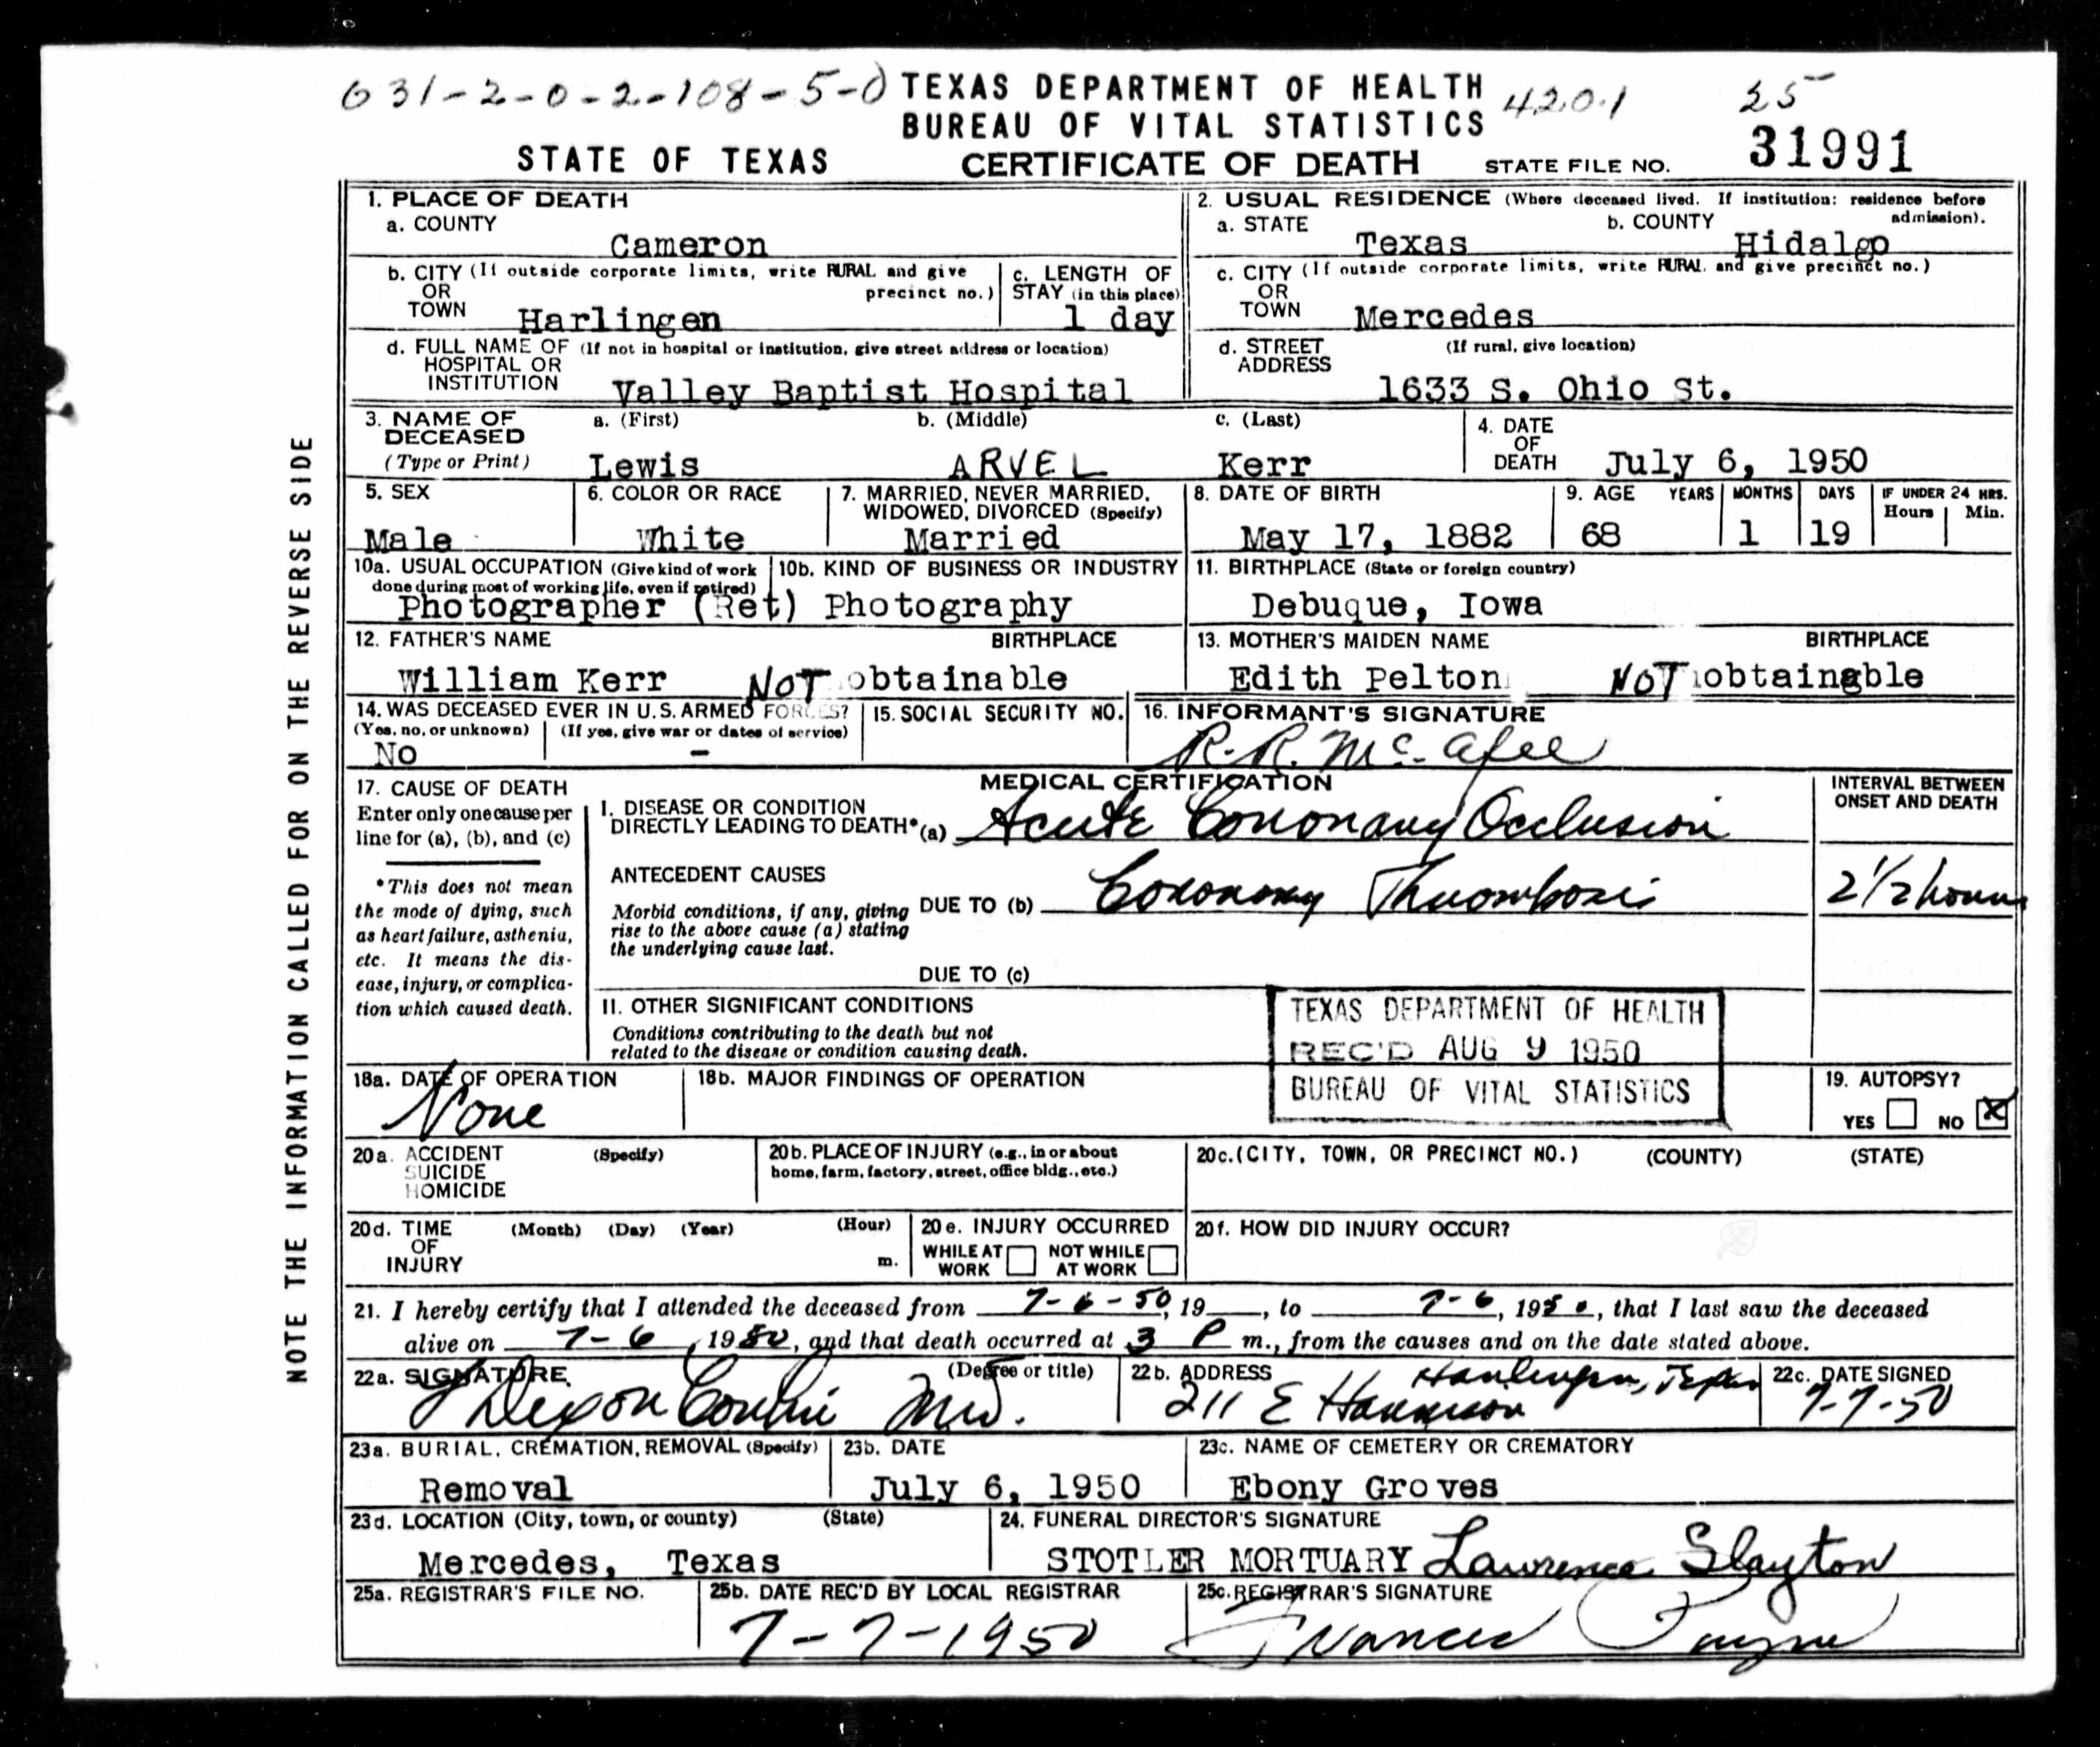 631-2-0-2-108-5-0 TEXAS DEPARTMENT OF HEALTH 420.1 25
BUREAU OF VITAL STATISTICS
STATE OF TEXAS CERTIFICATE OF DEATH STATE FILE NO. 31991
NOTE THE INFORMATION CALLED FOR ON THE REVERSE SIDE
1. PLACE OF DEATH
a. COUNTY
Cameron
2. USUAL RESIDENCE (Where deceased lived. If institution: residence before admission).
a. STATE Texas b. COUNTY Hidalgo
b. CITY (If outside corporate limits, write RURAL and give precinct no.)
OR
TOWN Harlingen
c. LENGTH OF
STAY (in this place)
1 day
c. CITY (If outside corporate limits, write RURAL and give precinct no.)
OR
TOWN Mercedes
d. FULL NAME OF (If not in hospital or institution, give street address or location)
HOSPITAL OR
INSTITUTION Valley Baptist Hospital
d. STREET (If rural, give location)
ADDRESS
1633 S. Ohio St.
3. NAME OF DECEASED
(Type or Print)
a. (First) b. (Middle) c. (Last)
Lewis ARVEL Kerr
4. DATE
OF
DEATH July 6, 1950
5. SEX
Male
6. COLOR OR RACE
White
7. MARRIED, NEVER MARRIED,
WIDOWED, DIVORCED (Specify)
Married
8. DATE OF BIRTH
May 17, 1882
9. AGE YEARS MONTHS DAYS IF UNDER 24 HRS.
Hours Min.
68 1 19
10a. USUAL OCCUPATION (Give kind of work
done during most of working life, even if retired)
Photographer (Ret)
10b. KIND OF BUSINESS OR INDUSTRY
Photography
11. BIRTHPLACE (State or foreign country)
Debuque, Iowa
12. FATHER'S NAME BIRTHPLACE
William Kerr NOT obtainable
13. MOTHER'S MAIDEN NAME BIRTHPLACE
Edith Pelton NOT obtaingble
14. WAS DECEASED EVER IN U.S. ARMED FORCES?
(Yes, no, or unknown) (If yes, give war or dates of service)
No -
15. SOCIAL SECURITY NO.
16. INFORMANT'S SIGNATURE
R. R. McAfee
17. CAUSE OF DEATH
Enter only one cause per
line for (a), (b), and (c)
*This does not mean
the mode of dying, such
as heart failure, asthenia,
etc. It means the dis-
ease, injury, or complica-
tion which caused death.
MEDICAL CERTIFICATION
I. DISEASE OR CONDITION
DIRECTLY LEADING TO DEATH* (a) Acute Coronary Occlusion
ANTECEDENT CAUSES
Morbid conditions, if any, giving
rise to the above cause (a) stating
the underlying cause last.
DUE TO (b) Coronary Thrombosis
DUE TO (c)
INTERVAL BETWEEN
ONSET AND DEATH
2 1/2 hours
II. OTHER SIGNIFICANT CONDITIONS
Conditions contributing to the death but not
related to the disease or condition causing death.
TEXAS DEPARTMENT OF HEALTH
REC'D AUG 9 1950
BUREAU OF VITAL STATISTICS
18a. DATE OF OPERATION
None
18b. MAJOR FINDINGS OF OPERATION
19. AUTOPSY?
YES NO X
20a. ACCIDENT (Specify)
SUICIDE
HOMICIDE
20b. PLACE OF INJURY (e.g., in or about
home, farm, factory, street, office bldg., etc.)
20c. (CITY, TOWN, OR PRECINCT NO.) (COUNTY) (STATE)
20d. TIME (Month) (Day) (Year) (Hour)
OF
INJURY m.
20e. INJURY OCCURRED
WHILE AT WORK NOT WHILE AT WORK
20f. HOW DID INJURY OCCUR?
21. I hereby certify that I attended the deceased from 7-6-50, 19 , to 7-6, 1950, that I last saw the deceased
alive on 7-6, 1950, and that death occurred at 3 P m., from the causes and on the date stated above.
22a. SIGNATURE (Degree or title)
MD.
22b. ADDRESS Harlingen, Texas
211 E Harrison
22c. DATE SIGNED
7-7-50
23a. BURIAL, CREMATION, REMOVAL (Specify)
Removal
23b. DATE
July 6, 1950
23c. NAME OF CEMETERY OR CREMATORY
Ebony Groves
23d. LOCATION (City, town, or county) (State)
Mercedes, Texas
24. FUNERAL DIRECTOR'S SIGNATURE
STOTLER MORTUARY Lawrence Slayton
25a. REGISTRAR'S FILE NO.
25b. DATE REC'D BY LOCAL REGISTRAR
7-7-1950
25c. REGISTRAR'S SIGNATURE
Frances Payne